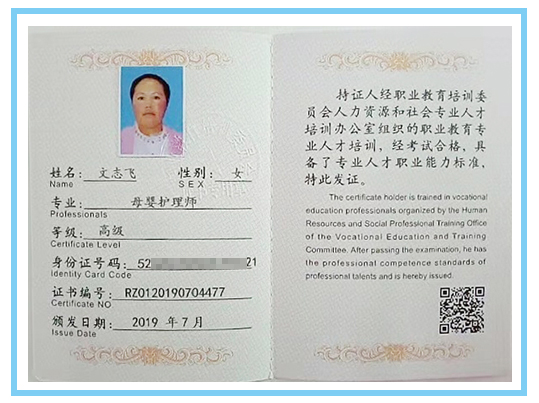 姓名： 文志飞 性别： 女
Name SEX
专业： 母婴护理师
Professionals
等级： 高级
Certificate Level
身份证号码： 52 21
Identity Card Code
证书编号： RZ0120190704477
Certificate NO
颁发日期： 2019 年 7 月
Issue Date
持证人经职业教育培训委
员会人力资源和社会专业人才
培训办公室组织的职业教育专
业人才培训，经考试合格，具
备了专业人才职业能力标准，
特此发证。
The certificate holder is trained in vocational
education professionals organized by the Human
Resources and Social Professional Training Office
of the Vocational Education and Training
Committee. After passing the examination, he has
the professional competence standards of
professional talents and is hereby issued.